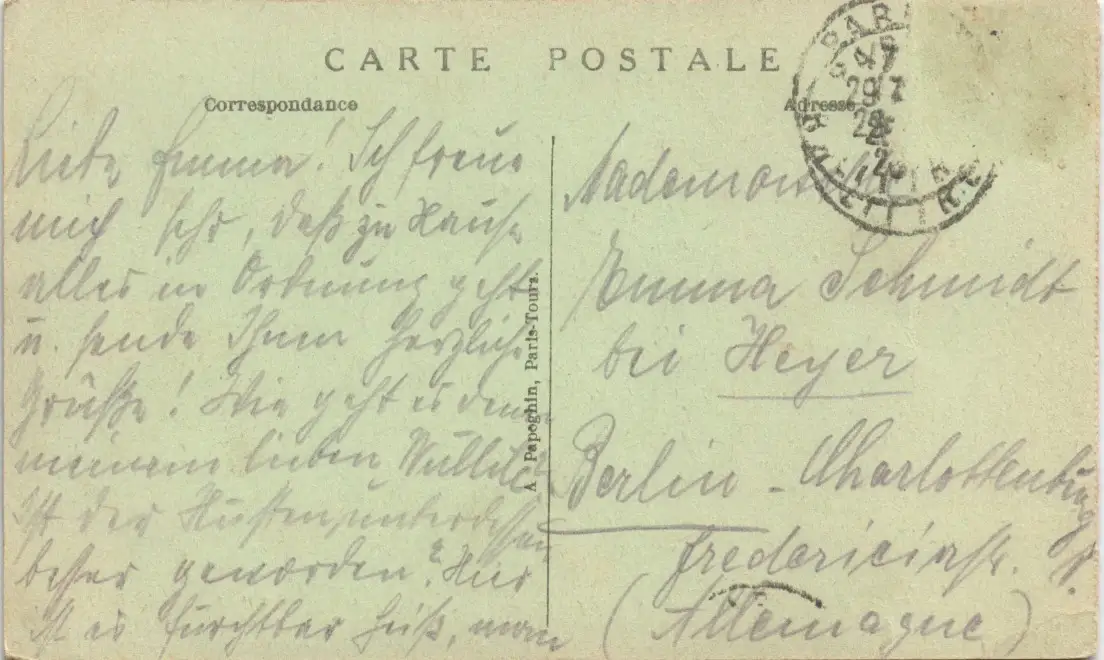 CARTE POSTALE
Correspondance
Adresse
Liebe Emma! Ich freue
mich sehr, daß zu Hause
alles in Ordnung geht
u. sende Ihnen herzliche
Grüße! Wie geht es denn
meinem lieben
Ist der Husten unterdessen
besser geworden? Hier
ist es furchtbar heiß, man
A. Papeghin, Paris-Tours.
PARIS
Mademoiselle
Emma Schmidt
bei Heyer
Berlin - Charlottenburg
Fredericiastr.
(Allemagne)